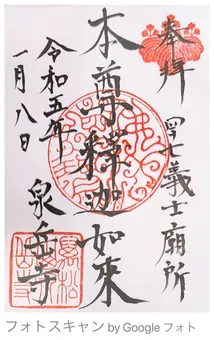 奉拝
四七義士廟所
本尊釋迦如來
令和五年
一月八日
泉岳寺
フォトスキャン by Google フォト